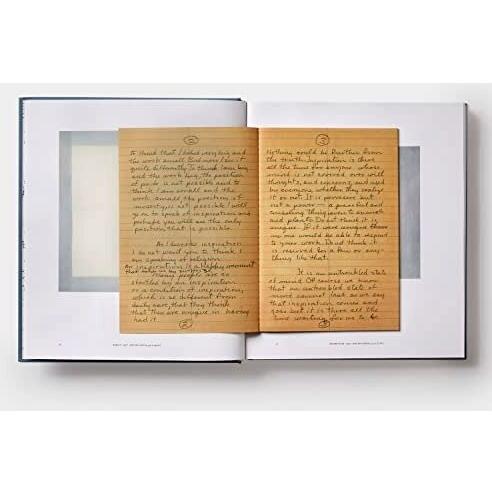 to think that I had very big and
the work small. And now I see it
quite differently. To think I am big
and the work big, the position
of pride is not possible and to
think I am small and the
work small, the position of
modesty is not possible. I will
go on to speak of inspiration and
perhaps you will see the only
position that is possible.
As I describe inspiration
I do not want you to think I
am speaking of religion.
An inspiration is a happy moment
Many people are so
startled by an inspiration
or a condition of inspiration,
which is so different from
daily care, that they think
that they are unique in having
had it.
Nothing could be further from
the truth. Inspiration is there
all the time for anyone whose
mind is not covered over with
thoughts and concerns, and used
by everyone whether they realize
it or not. It is pervasive but
not a power - a peaceful and
consoling thing even to animals
and plants. Do not think it is
unique. If it were unique there
no one would be able to respond
to your work. Do not think
it is reserved for a few or any-
thing like that.
It is an untroubled state
of mind. Of course we know
that an untroubled state of
mind cannot last so we say
that inspiration comes and
goes but it is there all the
time waiting for us to be